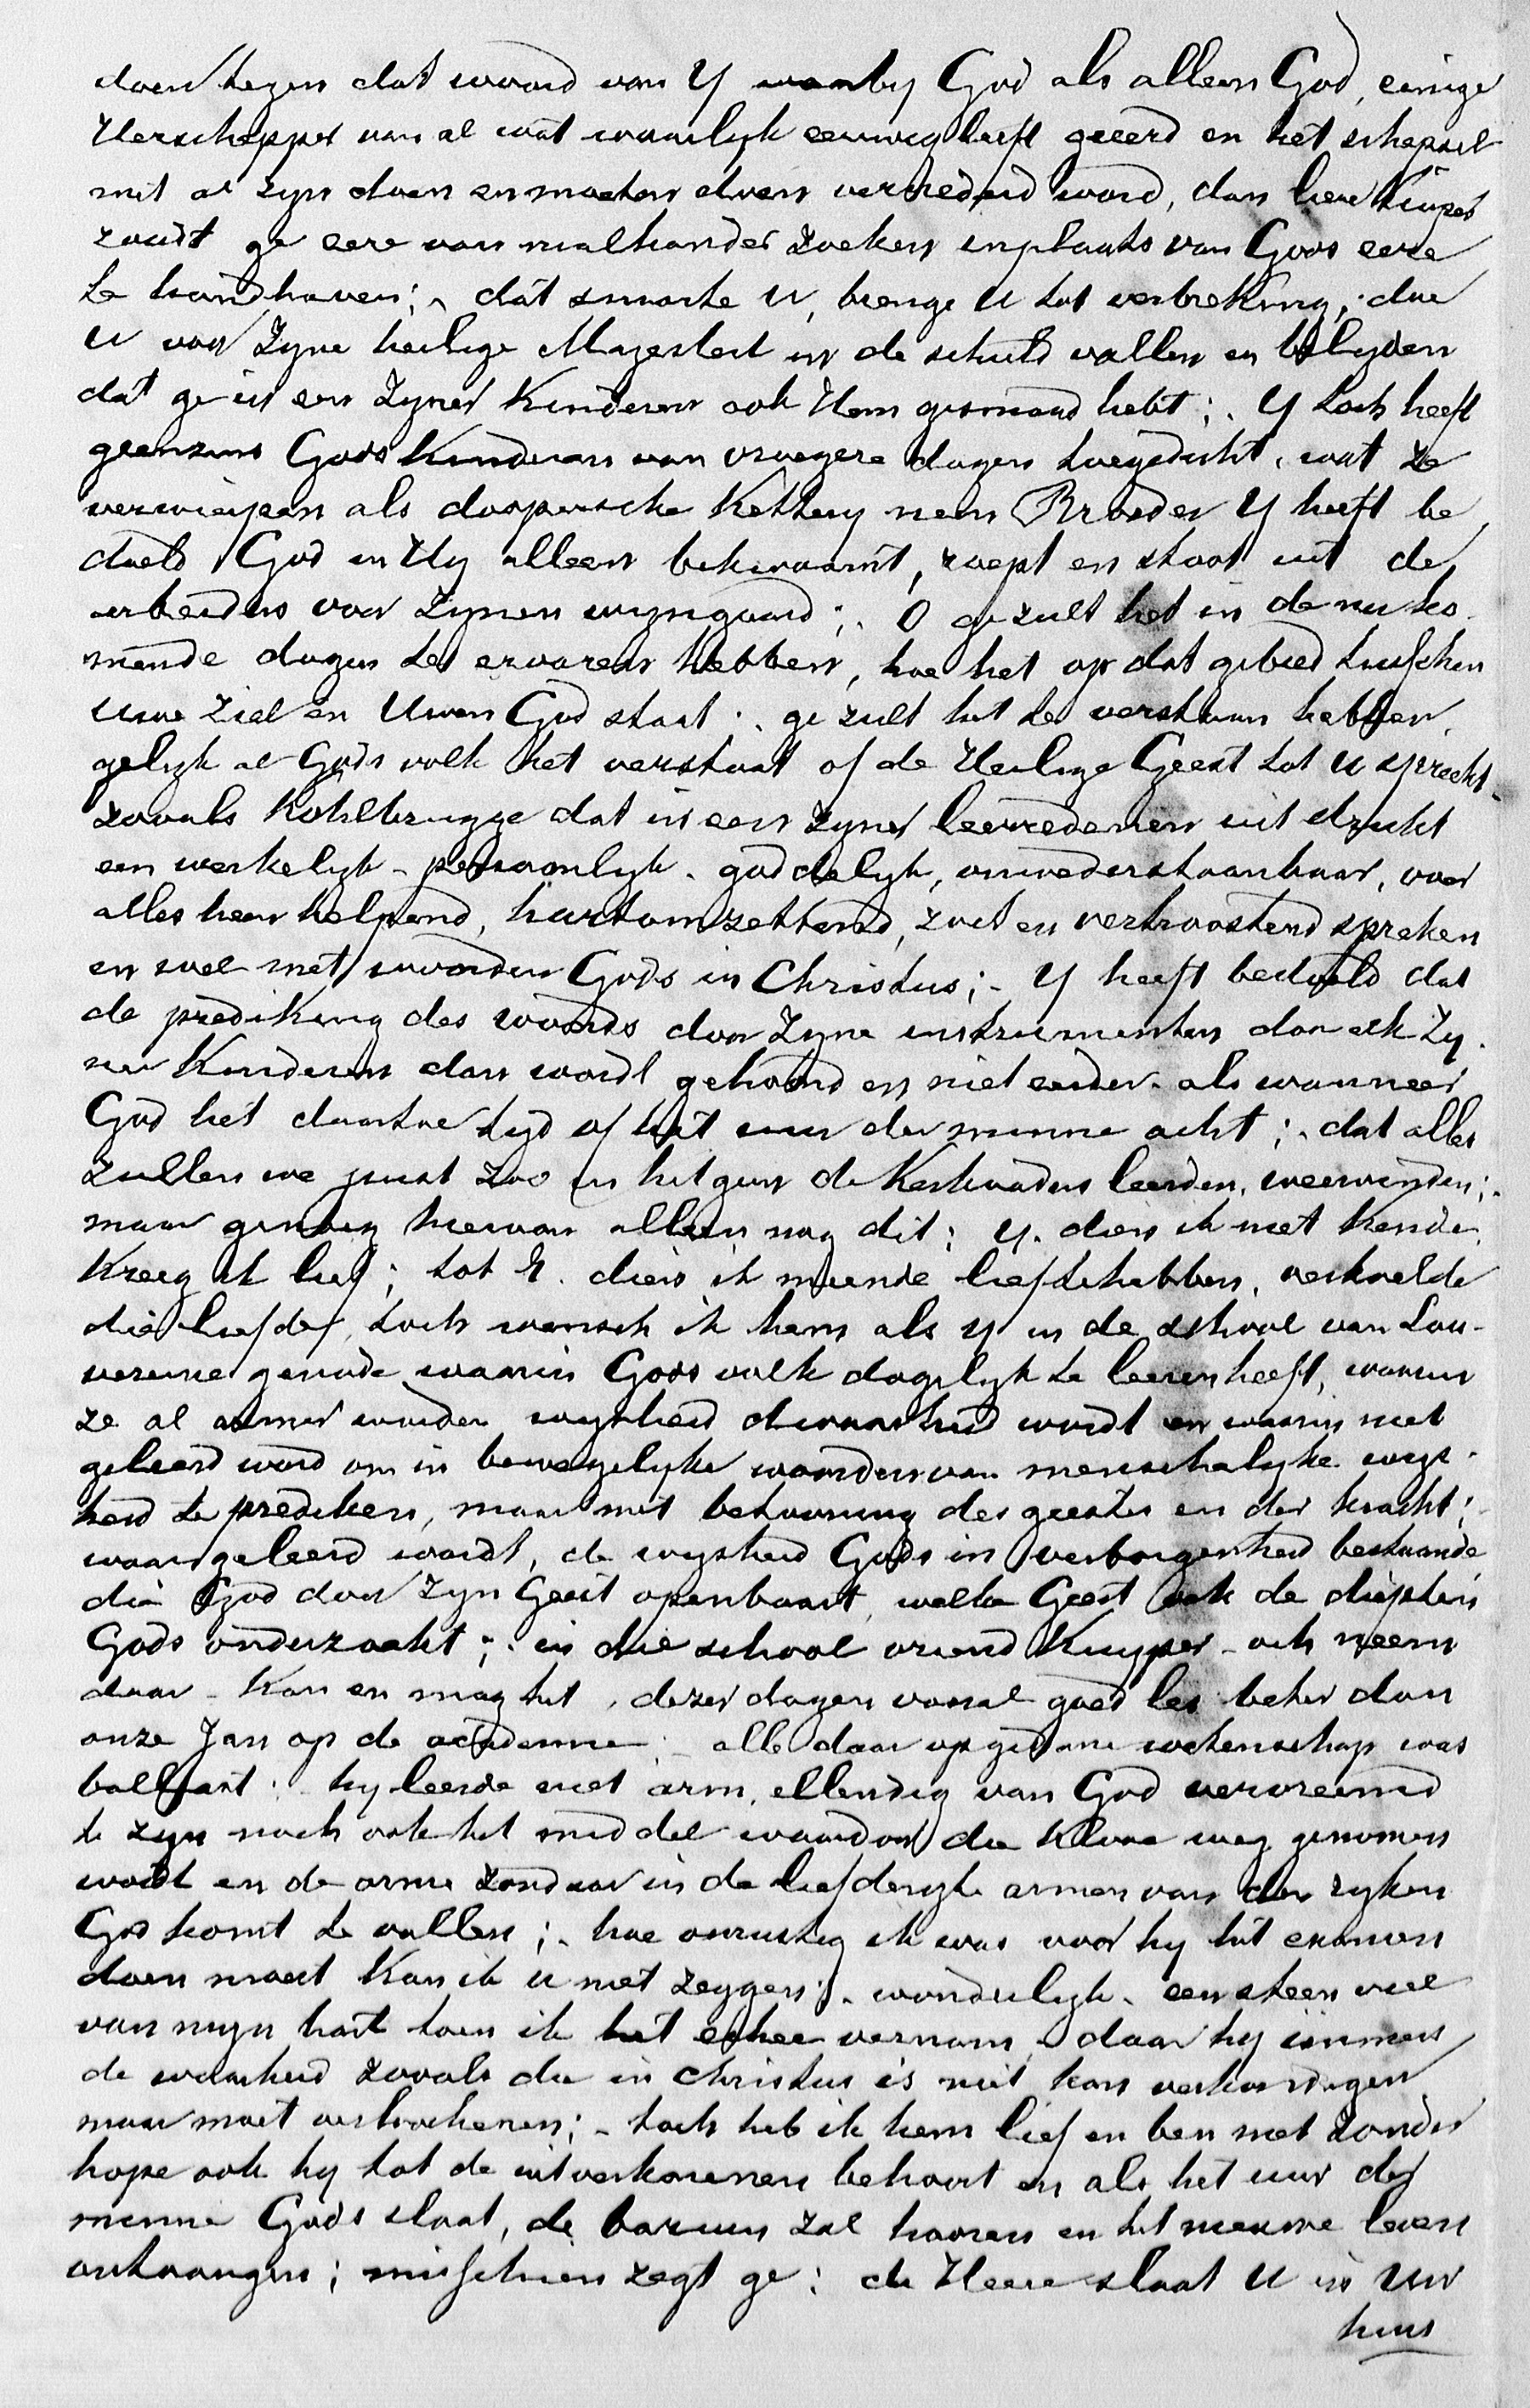 doen tegen dat woord van Y waarby God als alleen God, eenige
Herschepper van al wat waarlyk eeuwig leeft geeerd en het schepsel
met al zyn doen en moeten doen vernederd word, dan lieve Kuiper
zoudt ge eere van malkander zoeken inplaats van Gods eere
te handhaven; - dát smarte U, brenge U tot verbreking, doe
U voor Zyne heilige Majesteit in de schuld vallen en belyden
dat ge in een Zyner Kinderen ook Hem gesmaad hebt; - Y toch heeft
geenzins Gods Kinderen van vroegere dagen toegedicht, wat ze
verwierpen als dooperssche Kettery neen Broeder Y heeft be
doeld God en Hy alleen bekwaamt, roept en stoot uit de
arbeiders voor Zynen wyngaard; - O ge zult het in de nu ko-
mende dagen te ervaren hebben, hoe het op dat gebied tusschen
uwe Ziel en Uwen God staat; - ge zult het te verstaan hebben,
gelyk al Gods volk het verstaat of de Heilige Geest tot u spreekt -
zooals Kohlbrugge dat in een zyner leerredenen uit drukt
een werkelyk - persoonlyk - goddelyk, onwederstaanbaar, over
alles heen helpend, hartomzettend, zoet en vertroostend spreken
en wel met woorden Gods in Christus; - Y heeft bedoeld dat
de prediking des woords door Zyne instrumenten door elk Zy-
ner Kinderen dan wordt gehoord en niet eerder als wanneer
God het daartoe tyd of het uur der minne acht; - dat alles
zullen we juist zoo in hetgeen de Kerkvaders leerden, weervinden; -
maar genoeg hiervan alleen nog dit: Y. dien ik niet kende
kreeg ik lief; tot H. dien ik meende lief te hebben, verkoelde
die liefde, toch wensch ik hem als Y in de school van Sou-
vereine genade waarin Gods volk dagelyk te leeren heeft, waarin
ze al armer worden wysheid dwaasheid wordt en waarin niet
geleerd word om in bewegelyke woorden van menschelyke wys-
heid te prediken, maar met betooning des geestes en der kracht; -
waar geleerd wordt, de wysheid Gods in verborgenheid bestaande
die God door Zyn Geest openbaart, welke Geest ook de diepten
Gods onderzoekt; - in die school vriend Kuyper - och neem
daar - kan en mag het, dezer dagen vooral goed les beter dan
onze Jan op de academie; - alle daar opgedane wetenschap was
ballast; - hy leerde niet arm, ellendig van God vervreemd
te zyn noch ook het middel waardoor die Klove weg genomen
wordt en de arme zondaar in de liefderyke armen van den ryken
God komt te vallen; - hoe onrustig ik was voor hy het examen
doen moest kan ik u niet zeggen; - wonderlyk - een steen viel
van myn hart toen ik het echec vernam - daar hy immers
de waarheid zooals die in Christus is niet kan verkondigen
maar moet verloochenen; - toch heb ik hem lief en ben niet zonder
hope ook hy tot de uitverkorenen behoort en als het uur der
minne Gods slaat, de bazuin zal hooren en het nieuwe leven
ontvangen; misschien zegt ge: de Heere slaat U in Uw
huis